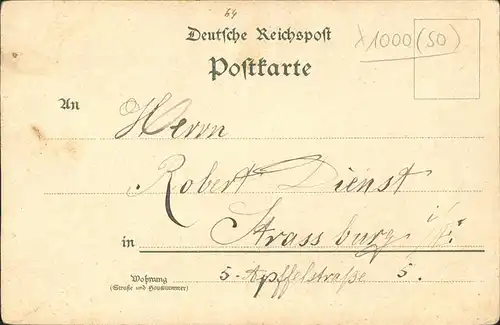 64
Deutsche Reichspost
x1000(50)
Postkarte
An Herrn
Robert Dienst
in Strassburg i/E.
Wohnung
(Straße und Hausnummer)
5 Apffelstraße 5.